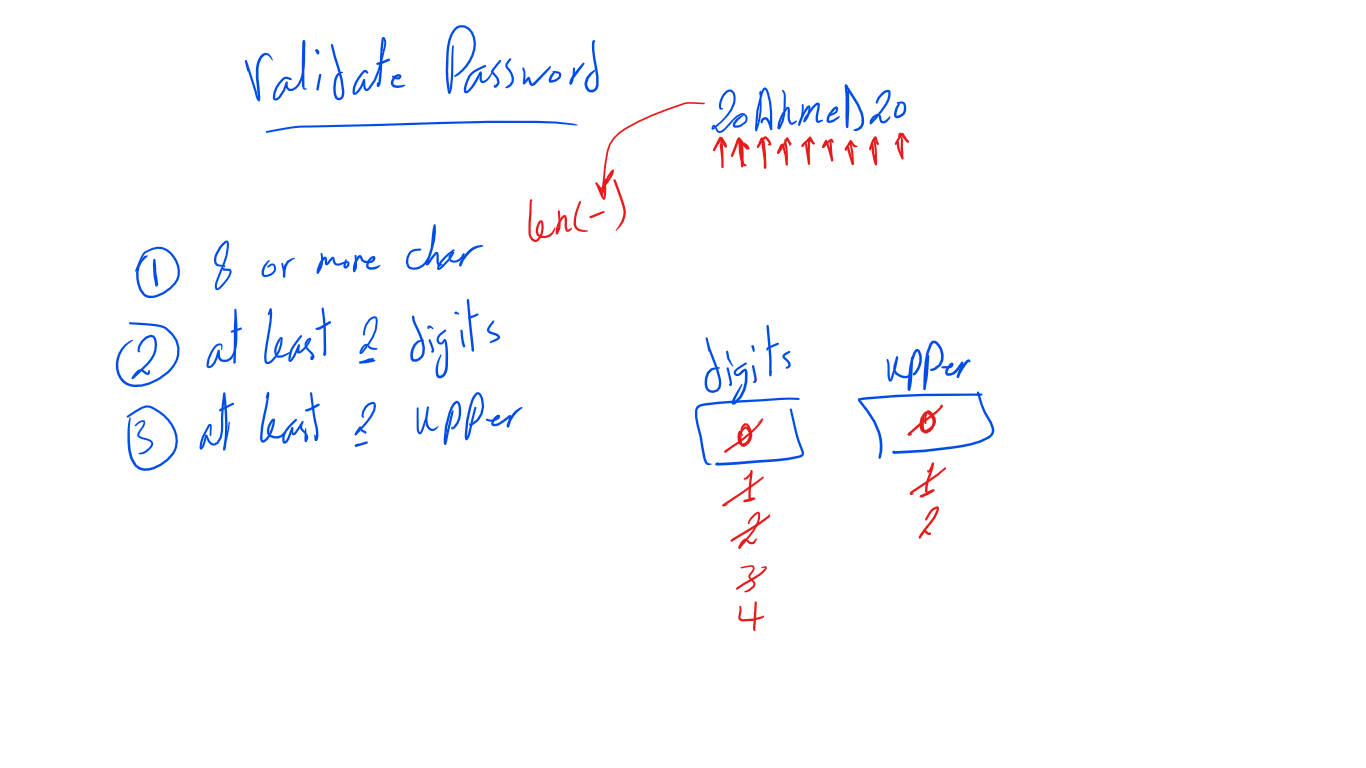 Validate Password
20AhmeD20
len(-)
① 8 or more char
② at least 2 digits
③ at least 2 upper
digits upper
0 0
1 1
2 2
3
4